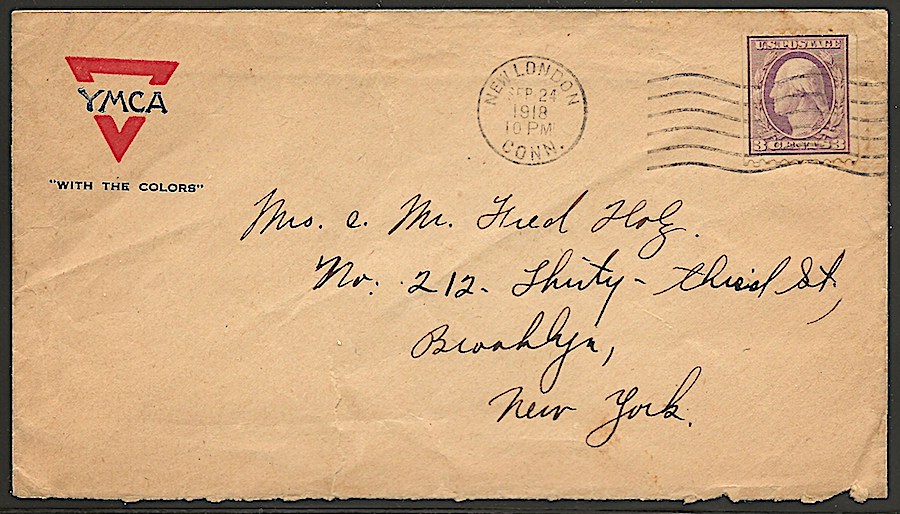 YMCA
"WITH THE COLORS"
NEW LONDON
SEP 24
1918
10 PM
CONN.
U.S. POSTAGE
3 CENTS 3
Mrs. e. Mr. Fred Holz.
No. 212- Thirty-third St,
Brooklyn,
New York.